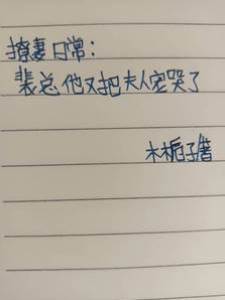 撩妻日常：
裴总他又把夫人宠哭了
木栀子著